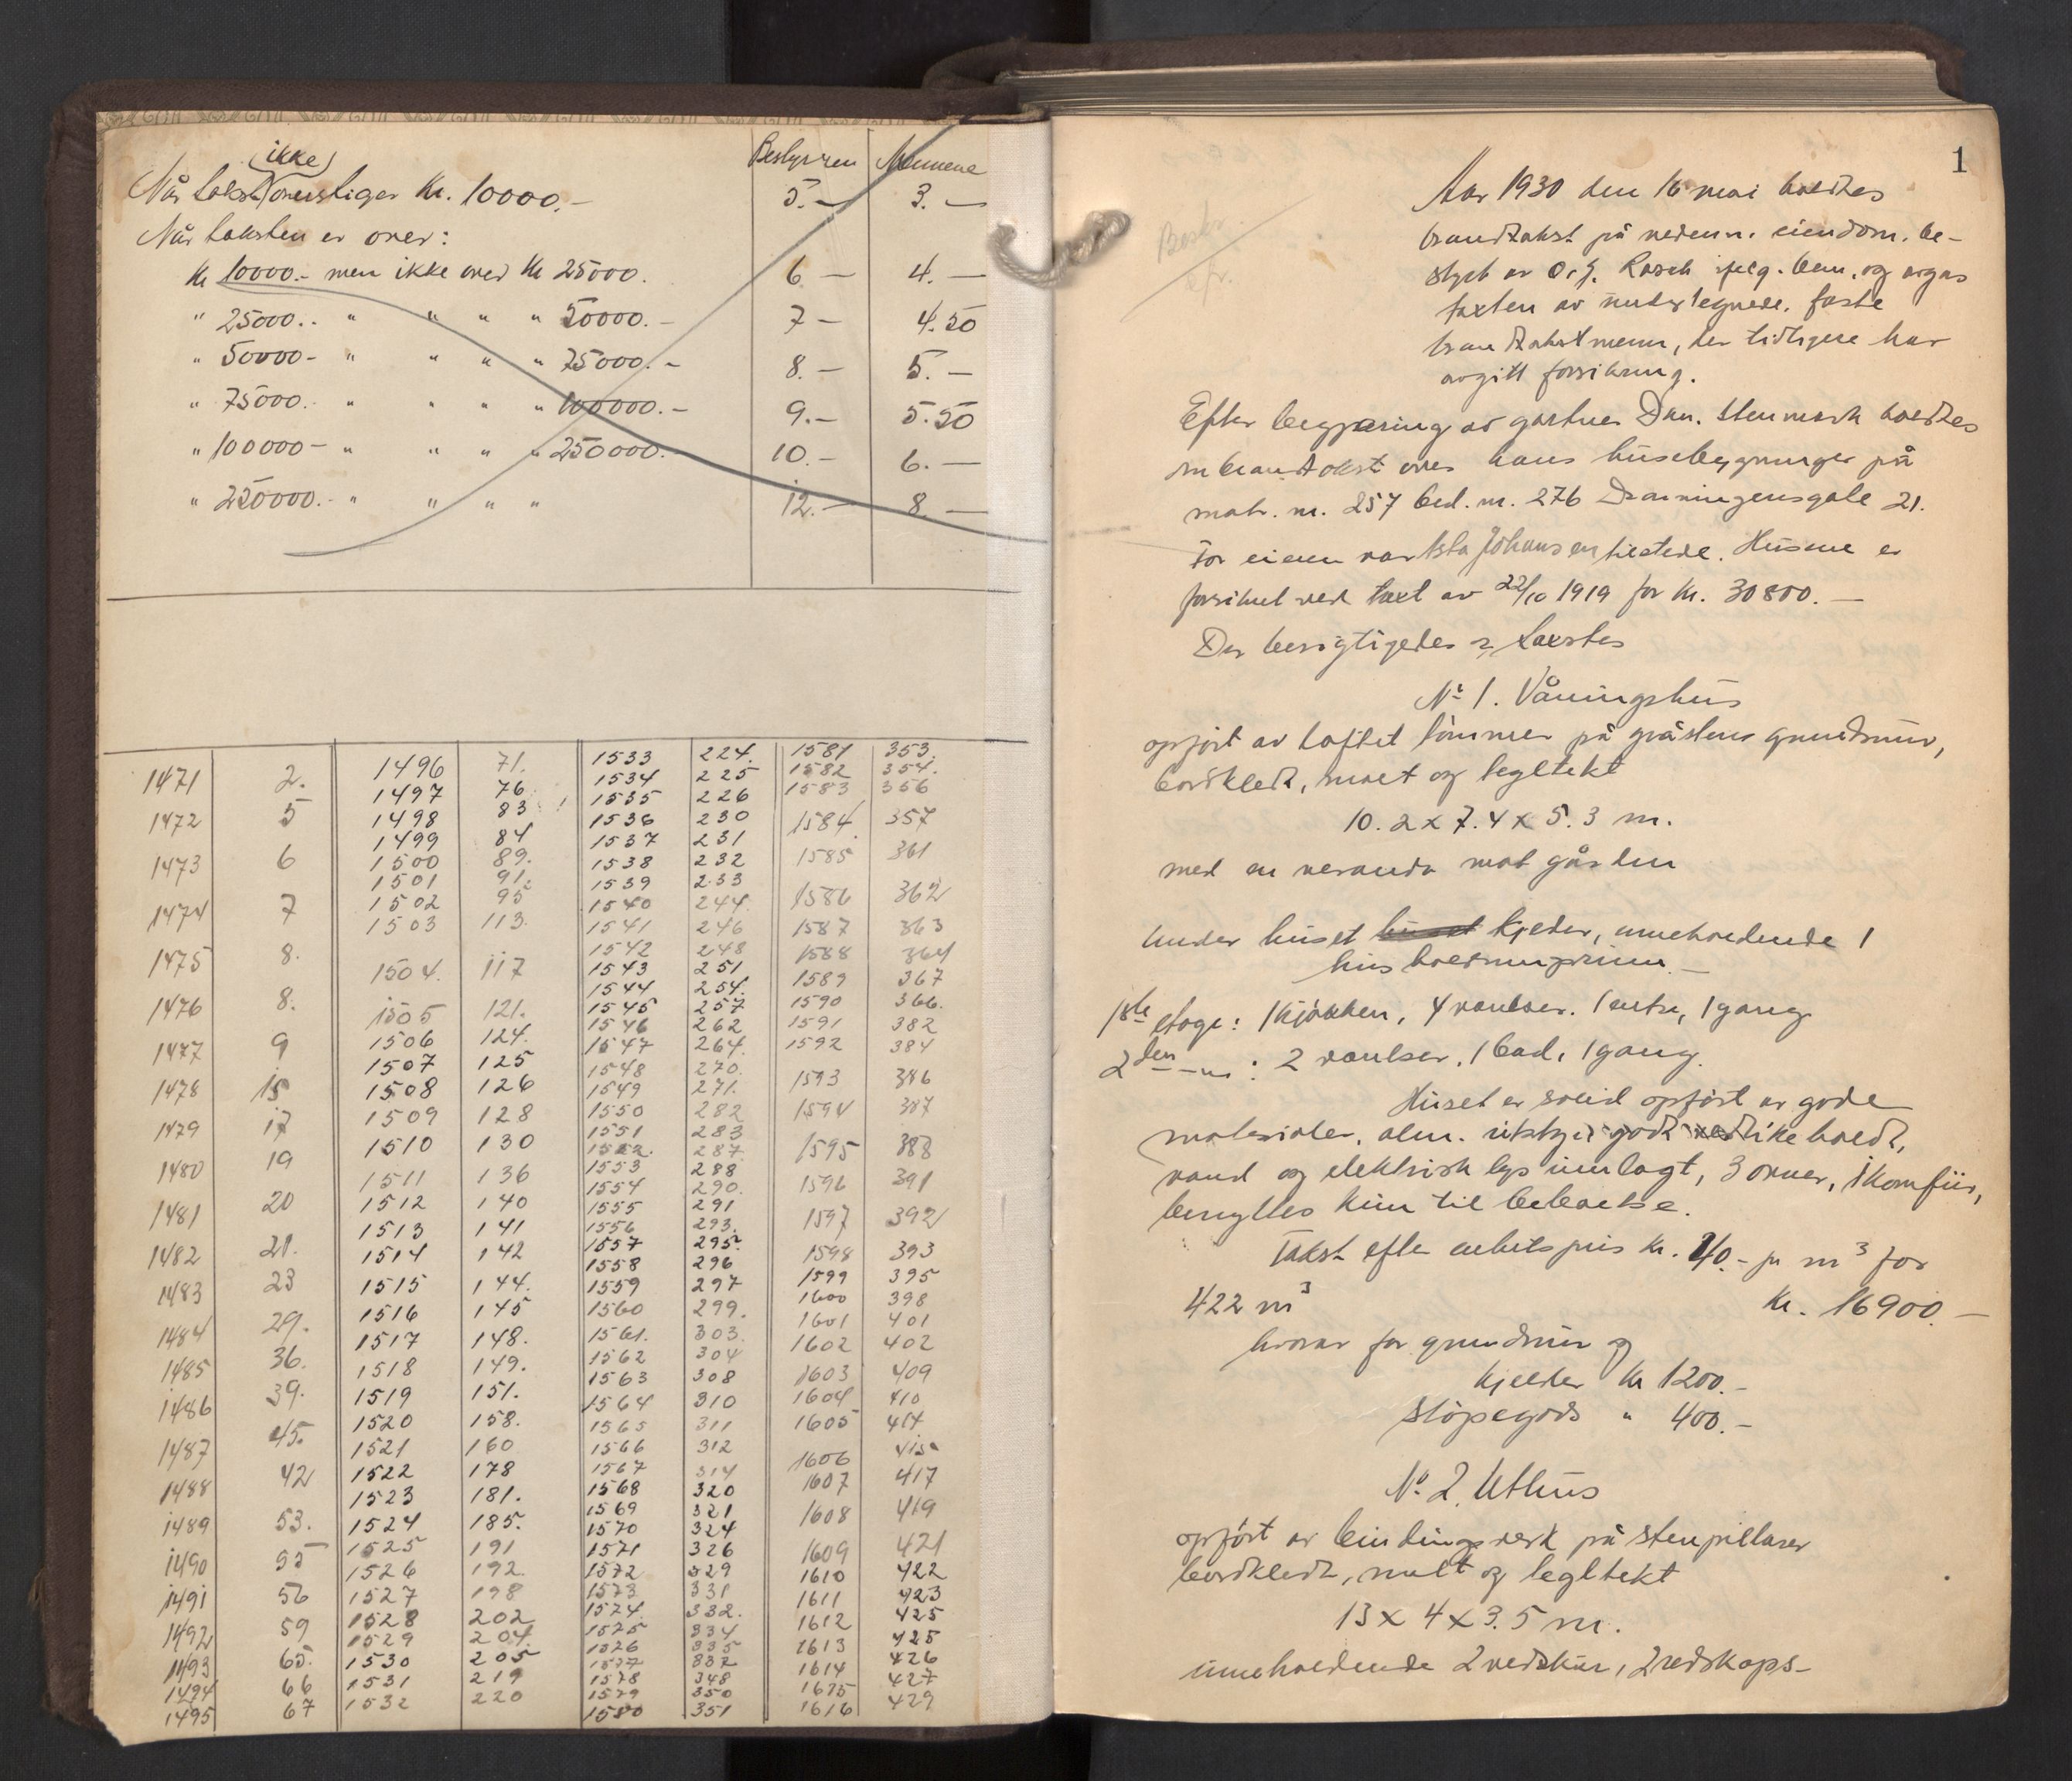 Bestyreren Mennene
ikke
Når takst overstiger Kr. 10000.- 5.- 3.-
Når taksten er over:
Kr 10000.- men ikke over Kr 25000. 6 - 4.-
" 25000.. " " " " 50000.- 7 - 4.50
" 50000- " " " " 75000.- 8.- 5.-
" 75000.- " " " " 100000.- 9.- 5.50
" 100000- " " " " 250000.- 10.- 6.-
" 250000.- " " " " 12.- 8 -
1471 2.
1472 5
1473 6
1474 7
1475 8.
1476 8.
1477 9
1478 15
1479 17
1480 19
1481 20
1482 21.
1483 23
1484 29.
1485 36.
1486 39.
1487 45.
1488 42
1489 53.
1490 55
1491 56
1492 59
1493 65.
1494 66
1495 67
1496 71.
1497 76
1498 83
1499 84
1500 89.
1501 91.
1502 95
1503 113.
1504. 117
1505 121.
1506 124.
1507 125
1508 126
1509 128
1510 130
1511 136
1512 140
1513 141
1514 142
1515 144.
1516 145
1517 148.
1518 149.
1519 151.
1520 158.
1521 160
1522 178
1523 181.
1524 185.
1525 191
1526 192.
1527 198
1528 202
1529 204.
1530 205
1531 219
1532 220
1533 224.
1534 225
1535 226
1536 230
1537 231
1538 232
1539 233
1540 244.
1541 246
1542 248
1543 251
1544 254.
1545 257
1546 262
1547 264.
1548 270.
1549 271.
1550 282
1551 283
1552. 287.
1553 288
1554 290.
1555 291
1556 293.
1557 295.
1558 296
1559 297
1560 299.
1561. 303.
1562 304
1563 308
1564 310
1565 311
1566 312
1567 314
1568 320
1569 321
1570 324
1571 326
1572 329
1573 331
1574. 332.
1575 334
1576 335
1577 337
1578 348
1579 350
1580 351
1581 353.
1582 354.
1583 356
1584. 357
1585 361
1586 362
1587 363
1588 364
1589 367
1590 366.
1591 382
1592 384
1593 386
1594 387
1595 388
1596 391
1597 392
1598 393
1599 395
1600 398
1601 401
1602 402
1603 409
1604 410
1605 414.
1606
1607 417
1608 419
1609 421
1610 422
1611 423
1612 425
1613 425
1614 426
1615 427
1616 429
1
Aar 1930 den 16 mai holdtes
brandtakst på nedenn. eiendom, be-
styrt av O. J. Rasch ifølg. bem. og avgav
taxten av undertegnede, faste
brandtakstmenn, der tidligere har
avgitt forsikring.
Efter begjæring av gartner Dan. Stenmark holdtes
ombrandtakst over hans husebygninger på
matr. nr. 257 bed. nr. 276 Dronningensgate 21.
For eieren var Asta Johansen tilstede. Husene er
forsikret ved taxt av 22/10 1919 for Kr. 30800.-
Der besigtigedes og taxstes
No 1. Våningshus
opført av laftet tømmer på gråstens grundmur,
bordkledt, malt og tegltekt
10.2 x 7.4 x 5.3 m.
med en veranda mot gården
under huset huset kjeder, inneholdende 1
husholdningsrum.-
1ste etage: 1 kjøkken, 4 værelser. 1 entre, 1 gang
2den -"- : 2 værelser, 1 bad, 1 gang.
Huset er solid opført av gode
materialer, alm. utstyr godt vedlikeholdt,
vand og elektrisk lys innlagt, 3 ovner, 1 komfür,
benyttes kun til beboelse.
Takst efter enhetspris Kr. 40.- pr m3 for
422 m3 Kr. 16900.-
hvorav for grundmur og
kjelder Kr 1200.-
støpegods " 400.-
No 2. Uthus
opført av bindingsverk på stenpillarer
bordkledt, malt og tegltekt
13 x 4 x 3.5 m.
inneholdende 2 vedskur, 2 redskaps-